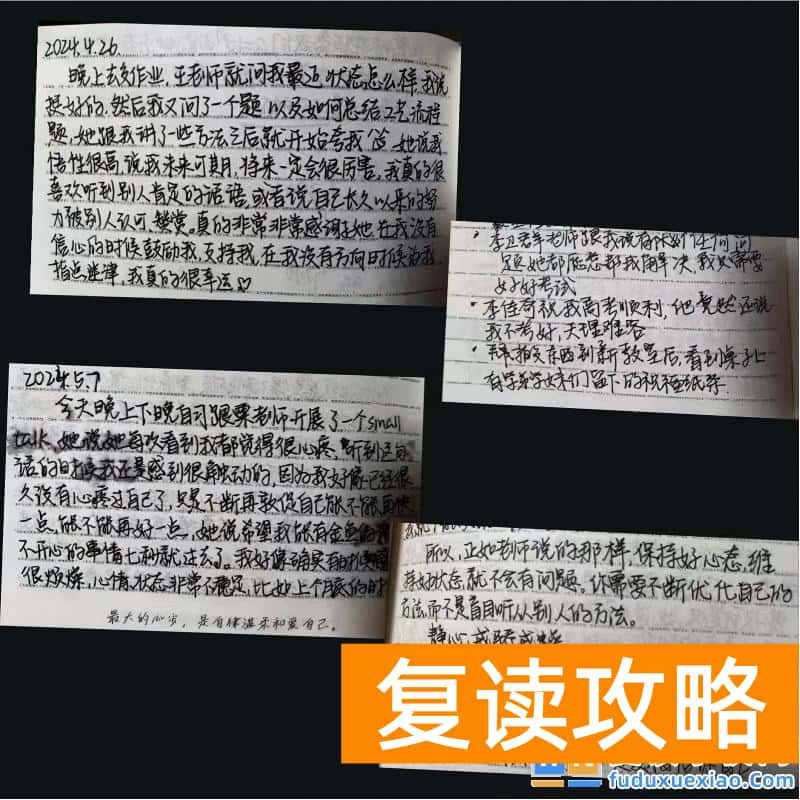 2024.4.26.
晚上去交作业，王老师就问我最近状态怎么样，我说
挺好的，然后我又问了一个题，以及如何总结工艺流程
题，她跟我讲了一些方法之后就开始夸我，她说我
悟性很高，说我未来可期，将来一定会很厉害。我真的很
喜欢听到别人肯定的话语，或者说自己长久以来的努
力被别人认可、赞赏。真的非常非常感谢她，在我没有
信心的时候鼓励我，支持我，在我没有方向时候为我
指点迷津，我真的很幸运
老师跟我说有做好任何问
题她都愿意帮我解决，我只需要
好好考试
李佳奇祝我高考顺利，他竟然还说
我不考好，天理难容
搬东西到新教室后，看到桌子上
有学弟学妹们留下的祝福纸条.
2024.5.7
今天晚上下晚自习跟栗老师开展了一个small
talk，她说她每次看到我都觉得很心疼，听到这句
话的时候我还是感到很触动的，因为我好像已经很
久没有心疼过自己了，只是不断再敦促自己能不能再快
一点，能不能再好一点，她说希望我能有金鱼的
不开心的事情七秒就过去了。我好像确实有的时候
很烦燥，心情、状态非常不稳定，比如上个月底的时
最大的心安，是自律温柔和爱自己。
所以，正如老师说的那样，保持好心态，维
持好状态就不会有问题。你需要不断优化自己的
方法，而不是盲目听从别人的方法。
静心，戒骄戒躁
复读攻略
fuduxuexiao.com